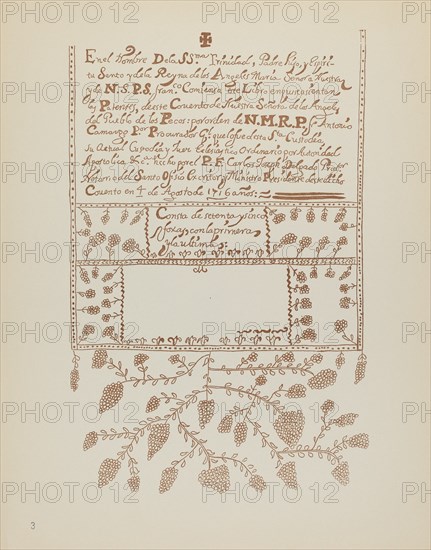 En el Nombre De la SSma Trinidad, Padre Hijo, y Espiri-
tu Santo y de la Reyna de los Angeles Maria Señora Nuestra
y de N.S.P.S. Franco Comiensa este Libro
los deste Convento de Nuestra Señora de los Angeles
del Pueblo de los Pecos: por orden de N.M.R.P. Fr Antonio
Camargo Por Procurador desta Sta Custodia,
su Actual Custodio y Juez Eclesiastico Ordinario por Autoridad
Apostolica &ca hecho por el P.F. Carlos Joseph Delgado
Notario del Santo Ofisio Escritor y Ministro Presidente de dicho
Covento en 1 de Agosto de 1716 años:
Consta de setenta y sinco
foxas con la primera
y la ultima:
3
PHOTO 12